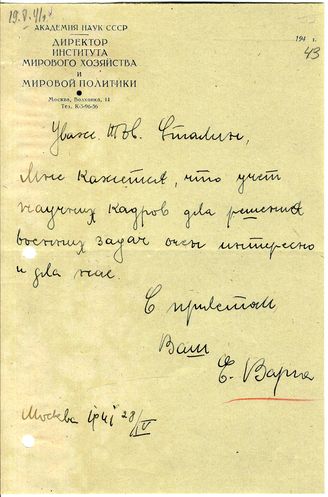 АКАДЕМИЯ НАУК СССР
ДИРЕКТОР
ИНСТИТУТА
МИРОВОГО ХОЗЯЙСТВА
И
МИРОВОЙ ПОЛИТИКИ
Москва, Волхонка, 14
Тел. К-5-96-56
194 г.
43
Уваж. тов. Сталин,
Мне кажется, что учет
научных кадров для решения
военных задач очень интересно
и для нас.
С приветом
Ваш
Е. Варга
Москва 28/IV